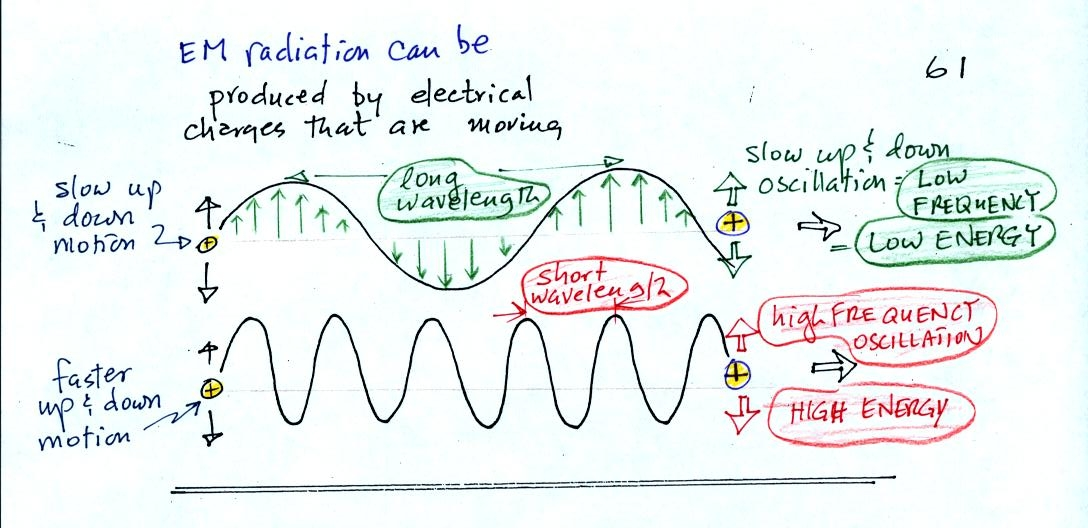 EM radiation can be
61
produced by electrical
charges that are moving
slow up
& down
motion
long
wavelength
slow up & down
oscillation =
LOW
FREQUENCY
= LOW ENERGY
short
wavelength
faster
up & down
motion
high FREQUENCY
OSCILLATION
HIGH ENERGY